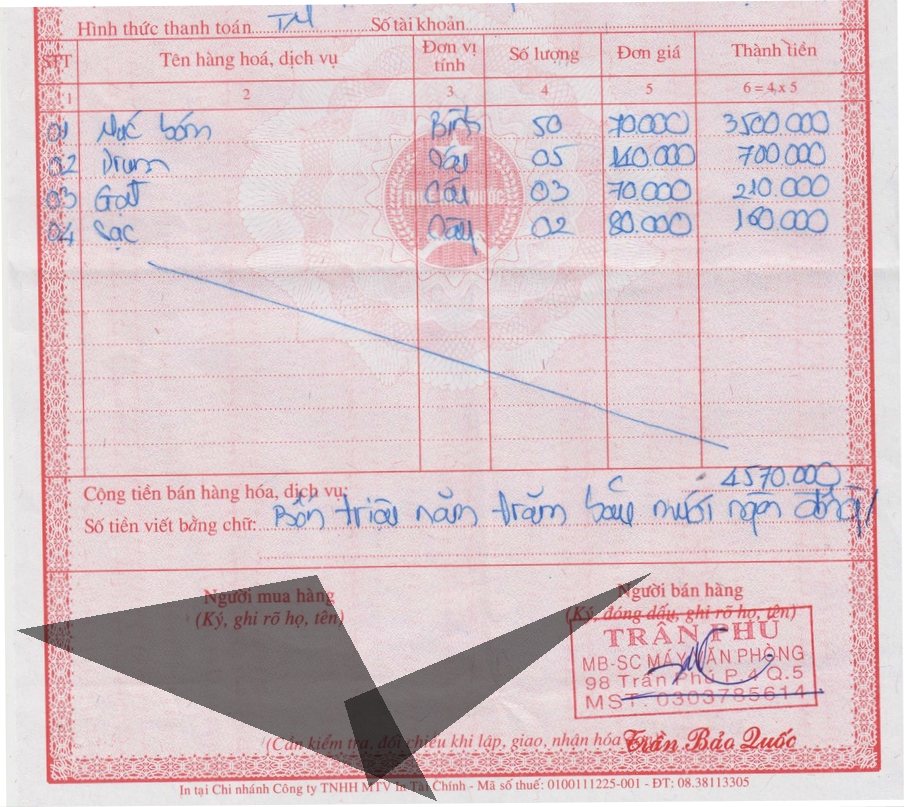 Hình thức thanh toán TM Số tài khoản
STT Tên hàng hoá, dịch vụ Đơn vị tính Số lượng Đơn giá Thành tiền
1 2 3 4 5 6 = 4 x 5
01 Mực bơm Bình 50 70.000 3500.000
02 Drum Cây 05 140.000 700.000
03 Gạt Cây 03 70.000 210.000
04 Sạc Cây 02 80.000 160.000
Cộng tiền bán hàng hóa, dịch vụ: 4570.000
Số tiền viết bằng chữ: Bốn triệu năm trăm bảy mươi ngàn đồng
Người mua hàng Người bán hàng
(Ký, ghi rõ họ, tên) (Ký, đóng dấu, ghi rõ họ, tên)
TRÂN PHÚ
MB-SC MÁY VĂN PHÒNG
98 Trần Phú P.4 Q.5
MST: 0303785614
(Cần kiểm tra, đối chiếu khi lập, giao, nhận hóa Trần Bảo Quốc
In tại Chi nhánh Công ty TNHH MTV In Tài Chính - Mã số thuế: 0100111225-001 - ĐT: 08.38113305